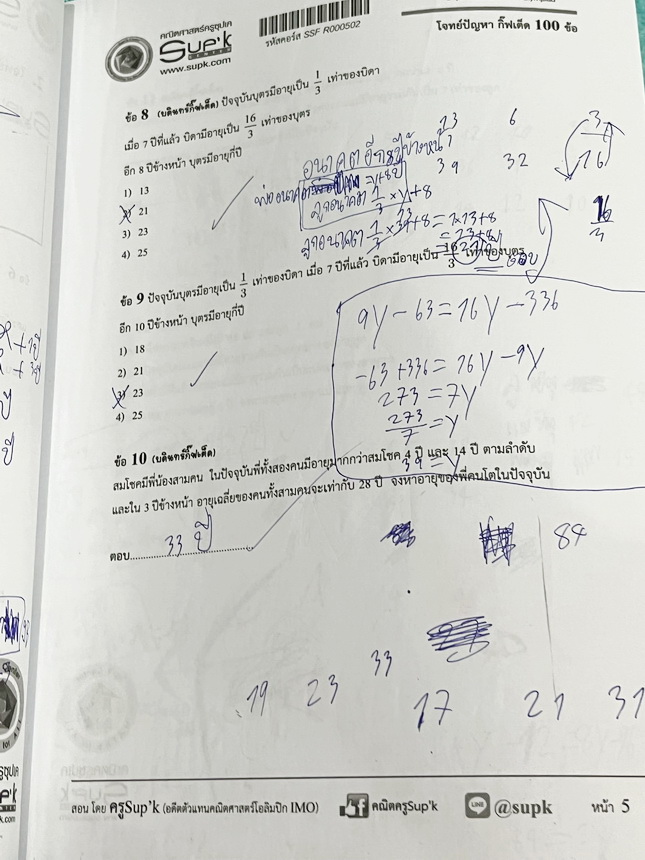 คณิตศาสตร์ครูซุปเค
Sup'k
www.supk.com
รหัสคอร์ส SSF R000502
โจทย์ปัญหา กิ๊ฟเต็ด 100 ข้อ
ข้อ 8 (บดินทร์กิ๊ฟเต็ด) ปัจจุบันบุตรมีอายุเป็น 1/3 เท่าของบิดา
เมื่อ 7 ปีที่แล้ว บิดามีอายุเป็น 16/3 เท่าของบุตร
อีก 8 ปีข้างหน้า บุตรมีอายุกี่ปี
1) 13
2) 21
3) 23
4) 25
13 6
39 32
3
16
16/3
อนาคตอีก 8 ปีข้างหน้า
พ่ออนาคต = y+8 ปี
ลูกอนาคต 1/3 × y + 8
ลูกอนาคต 1/3 × 39 + 8 = 1×13+8
= 13+8
= 21 ปี ตอบ
ข้อ 9 ปัจจุบันบุตรมีอายุเป็น 1/3 เท่าของบิดา เมื่อ 7 ปีที่แล้ว บิดามีอายุเป็น 16/3 เท่าของบุตร
อีก 10 ปีข้างหน้า บุตรมีอายุกี่ปี
1) 18
2) 21
3) 23
4) 25
9y - 63 = 16y - 336
-63 + 336 = 16y - 9y
273 = 7y
273/7 = y
39 = y
ข้อ 10 (บดินทร์กิ๊ฟเต็ด)
สมโชคมีพี่น้องสามคน ในปัจจุบันพี่ทั้งสองคนมีอายุมากกว่าสมโชค 4 ปี และ 14 ปี ตามลำดับ
และใน 3 ปีข้างหน้า อายุเฉลี่ยของคนทั้งสามคนจะเท่ากับ 28 ปี จงหาอายุของพี่คนโตในปัจจุบัน
ตอบ 33 ปี
84
19 23 33
17 21 31
สอน โดย ครูSup'k (อดีตตัวแทนคณิตศาสตร์โอลิมปิก IMO)
คณิตครูSup'k
LINE @supk
หน้า 5